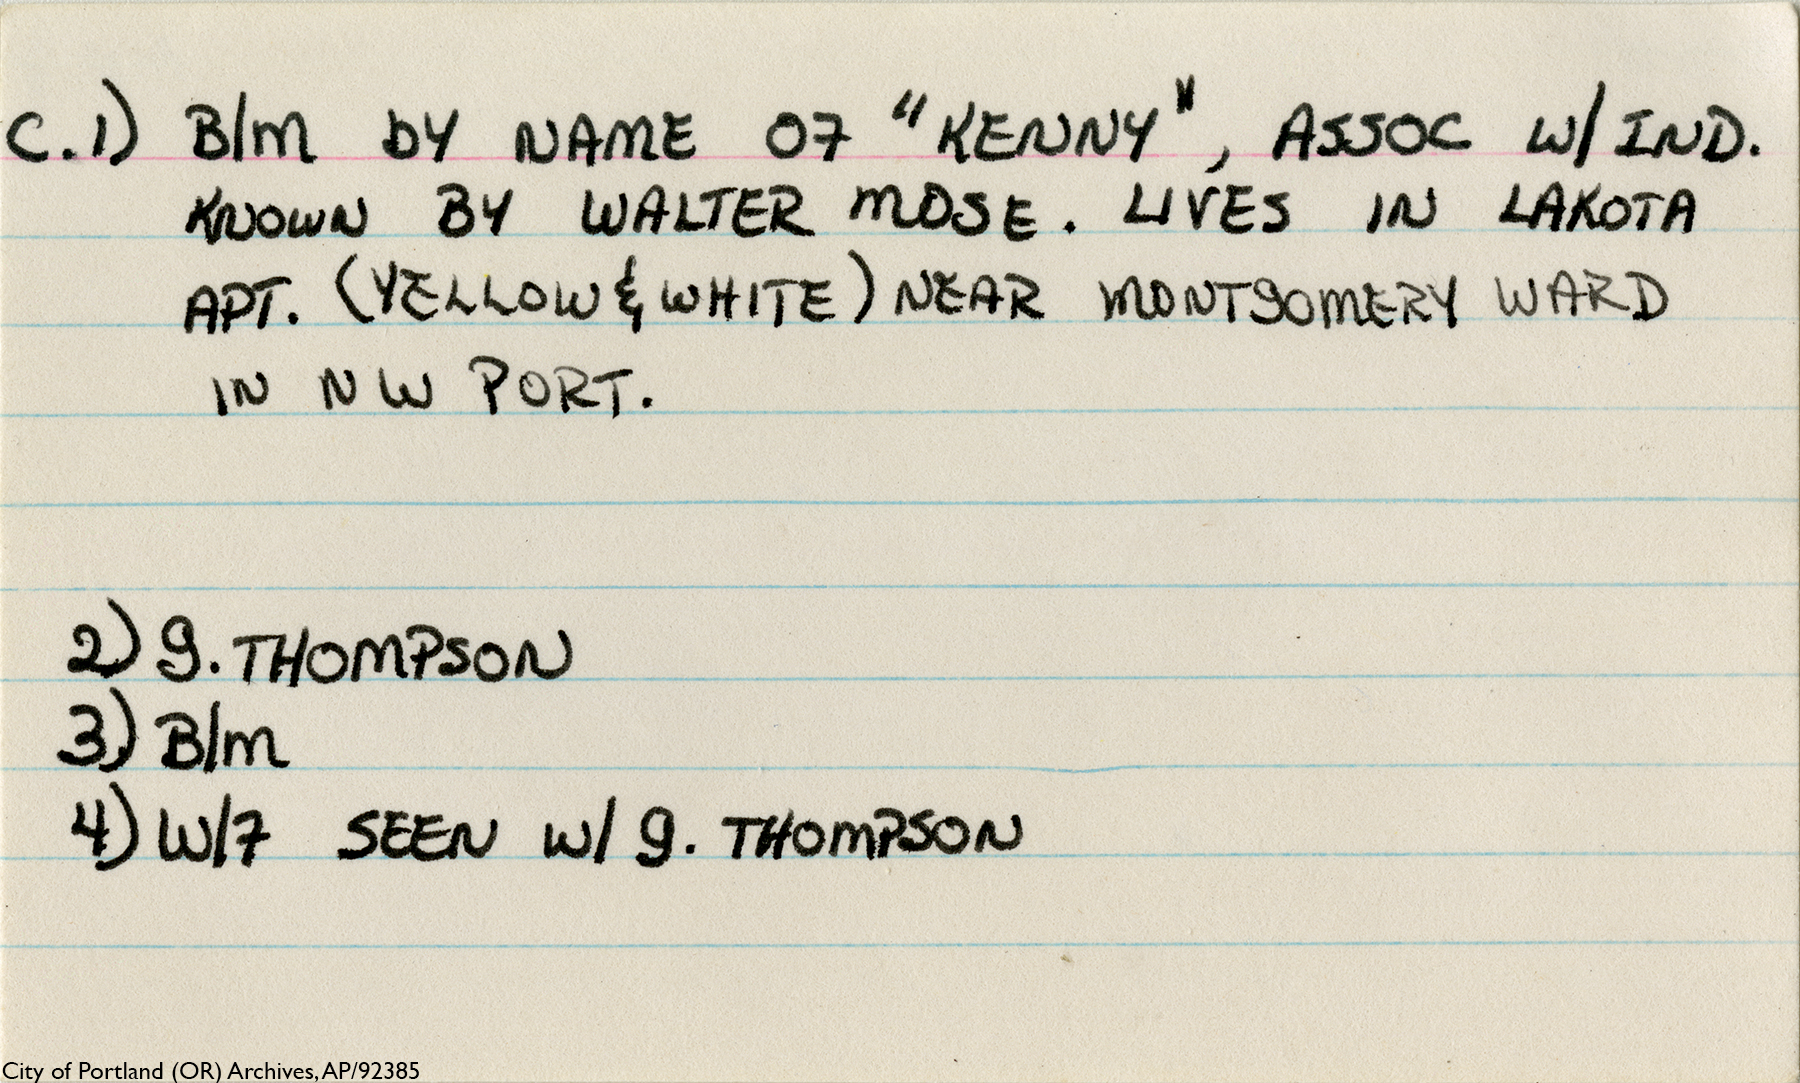 C.1) B/M BY NAME OF "KENNY", ASSOC W/ IND.
KNOWN BY WALTER MOSE. LIVES IN LAKOTA
APT. (YELLOW & WHITE) NEAR MONTGOMERY WARD
IN NW PORT.
2) G. THOMPSON
3) B/M
4) W/F SEEN W/ G. THOMPSON
City of Portland (OR) Archives, AP/92385